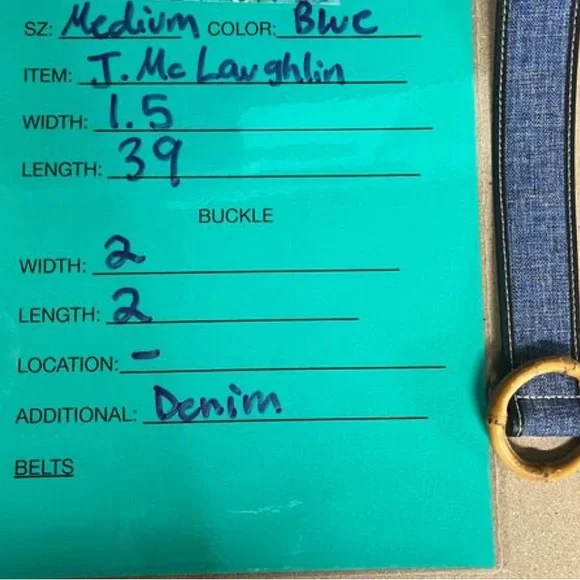 SZ: Medium COLOR: Blue
ITEM: J. McLaughlin
WIDTH: 1.5
LENGTH: 39
BUCKLE
WIDTH: 2
LENGTH: 2
LOCATION: -
ADDITIONAL: Denim
BELTS